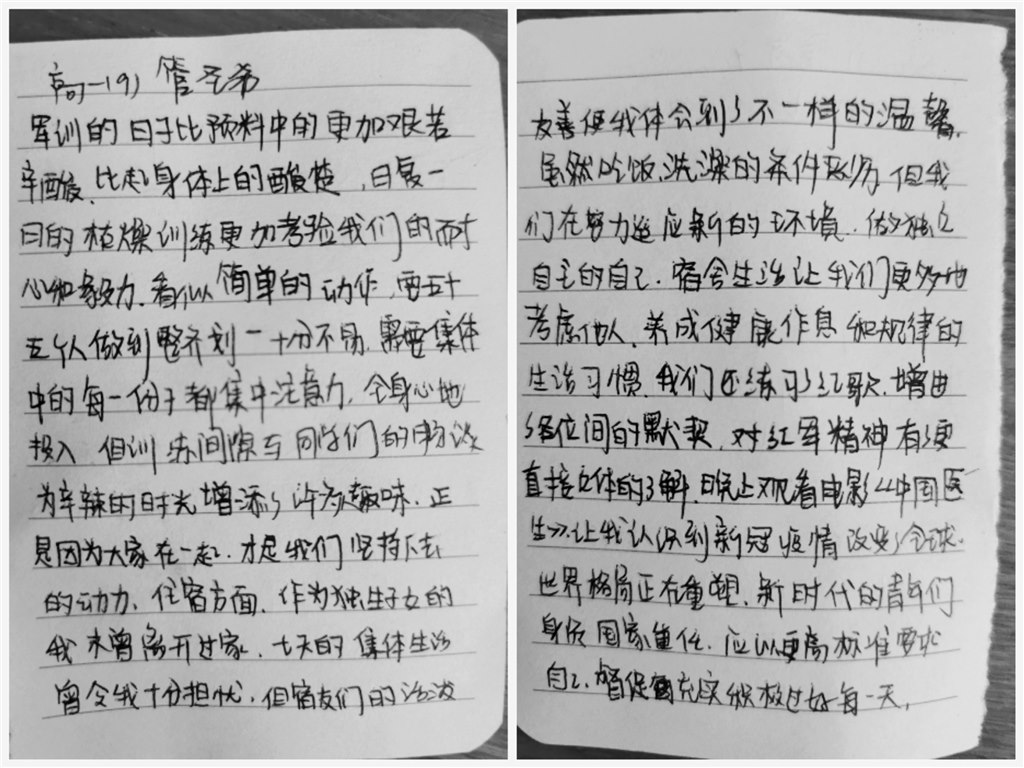 高一(9) 管圣希
军训的日子比预料中的更加艰苦
辛酸.比起身体上的酸楚,日复一
日的枯燥训练更加考验我们的耐
心和毅力.看似简单的动作,要五十
五个人做到整齐划一十分不易.需要集体
中的每一份子都集中注意力,全身心地
投入 但训练间隙与同学们的畅谈
为辛辣的时光增添了许多趣味.正
是因为大家在一起.才是我们坚持下去
的动力.住宿方面.作为独生子女的
我未曾离开过家.七天的集体生活
曾令我十分担忧.但宿友们的活泼
友善使我体会到了不一样的温馨.
虽然吃饭.洗澡的条件 但我
们在努力适应新的环境.做独立
自主的自己.宿舍生活让我们更多地
考虑他人.养成健康作息和规律的
生活习惯.我们还练习了红歌.增进
了各位间的默契.对红军精神有了更
直接立体的了解.晚上观看电影《中国医
生》让我认识到新冠疫情改变了全球.
世界格局正在重塑.新时代的青年们
身负国家重任.应以更高标准要求
自己.督促 充实积极过好每一天.